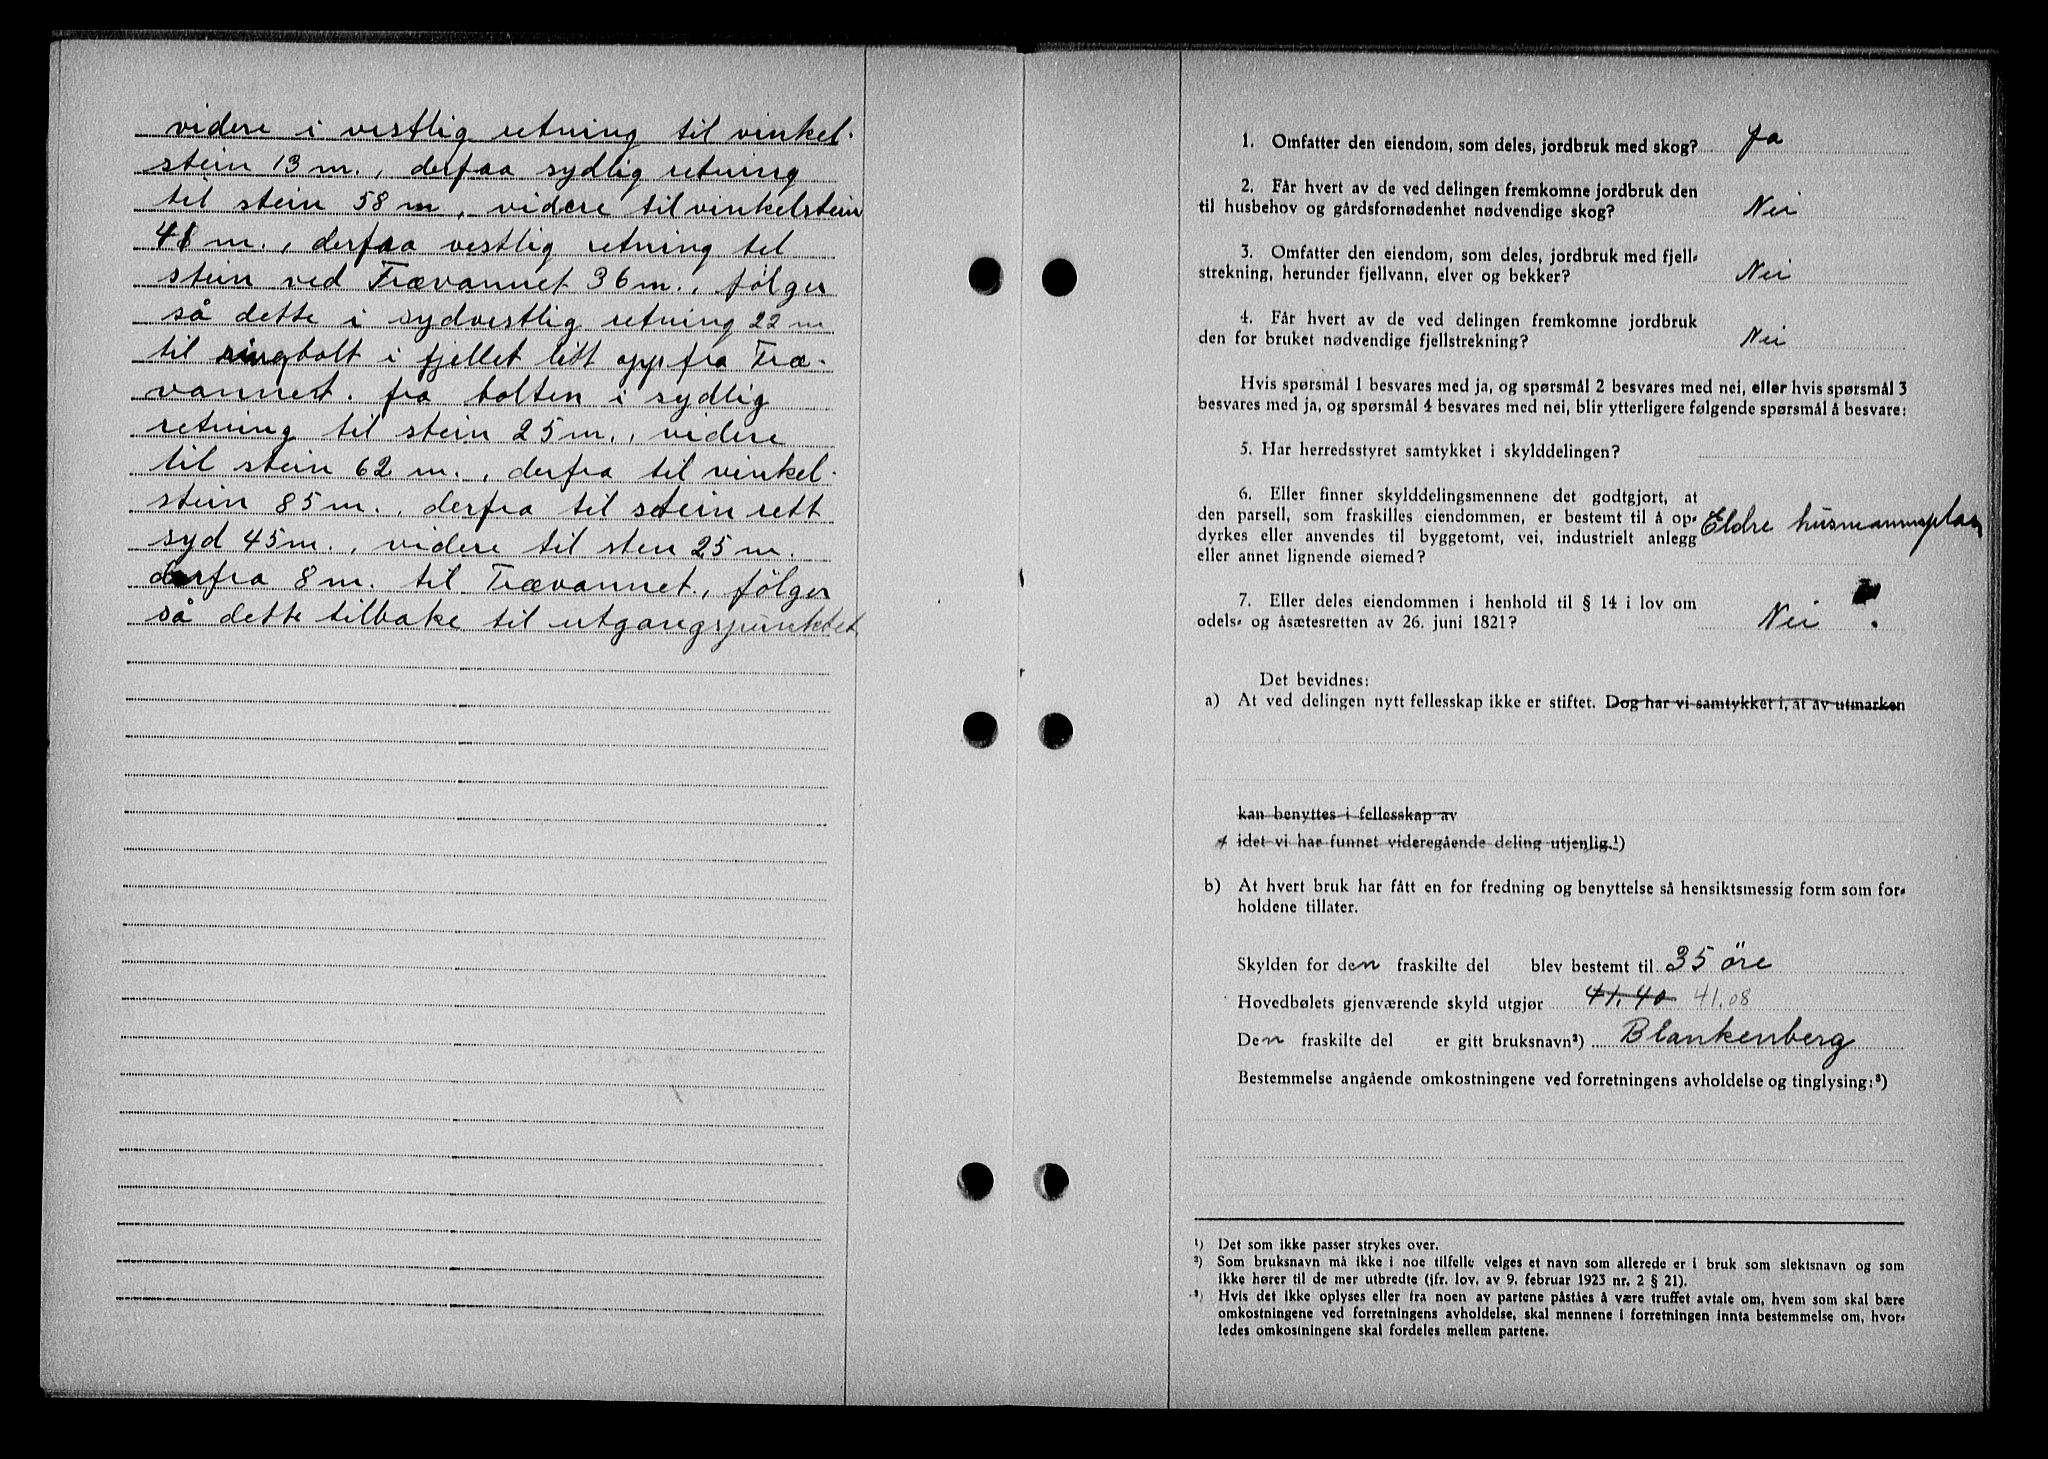 videre i vestlig retning til vinkel-
stein 13 m., derfaa sydlig retning
til stein 58 m, videre til vinkelstein
48 m., derfaa vestlig retning til
stein ved Trævannet 36 m., følger
så dette i sydvestlig retning 22 m
til ringbolt i fjellet litt opp fra Træ-
vannet. fra bolten i sydlig
retning til stein 25 m., videre
til stein 62 m., derfra til vinkel-
stein 85 m., derfra til stein rett
syd 45 m., videre til sten 25 m.
derfra 8 m. til Trævannet, følger
så dette tilbake til utgangspunktet
1. Omfatter den eiendom, som deles, jordbruk med skog? Ja
2. Får hvert av de ved delingen fremkomne jordbruk den
til husbehov og gårdsfornødenhet nødvendige skog? Nei
3. Omfatter den eiendom, som deles, jordbruk med fjell-
strekning, herunder fjellvann, elver og bekker? Nei
4. Får hvert av de ved delingen fremkomne jordbruk
den for bruket nødvendige fjellstrekning? Nei
Hvis spørsmål 1 besvares med ja, og spørsmål 2 besvares med nei, eller hvis spørsmål 3
besvares med ja, og spørsmål 4 besvares med nei, blir ytterligere følgende spørsmål å besvare:
5. Har herredsstyret samtykket i skylddelingen?
6. Eller finner skylddelingsmennene det godtgjort, at
den parsell, som fraskilles eiendommen, er bestemt til å op-
dyrkes eller anvendes til byggetomt, vei, industrielt anlegg Eldre husmannsplass
eller annet lignende øiemed?
7. Eller deles eiendommen i henhold til § 14 i lov om
odels- og åsætesretten av 26. juni 1821? Nei.
Det bevidnes:
a) At ved delingen nytt fellesskap ikke er stiftet. Dog har vi samtykket i, at av utmarken
kan benyttes i fellesskap av
idet vi har funnet videregående deling utjenlig.¹)
b) At hvert bruk har fått en for fredning og benyttelse så hensiktsmessig form som for-
holdene tillater.
Skylden for den fraskilte del blev bestemt til 35 öre
Hovedbølets gjenværende skyld utgjør 41.40 41.08
Den fraskilte del er gitt bruksnavn²) Blankenberg
Bestemmelse angående omkostningene ved forretningens avholdelse og tinglysing:³)
¹) Det som ikke passer strykes over.
²) Som bruksnavn må ikke i noe tilfelle velges et navn som allerede er i bruk som slektsnavn og som
ikke hører til de mer utbredte (jfr. lov. av 9. februar 1923 nr. 2 § 21).
³) Hvis det ikke oplyses eller fra noen av partene påståes å være truffet avtale om, hvem som skal bære
omkostningene ved forretningens avholdelse, skal mennene i forretningen innta bestemmelse om, hvor-
ledes omkostningene skal fordeles mellem partene.